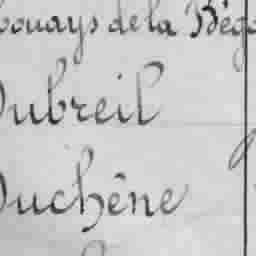 bouays de la Bégo
Dubreil
Duchêne